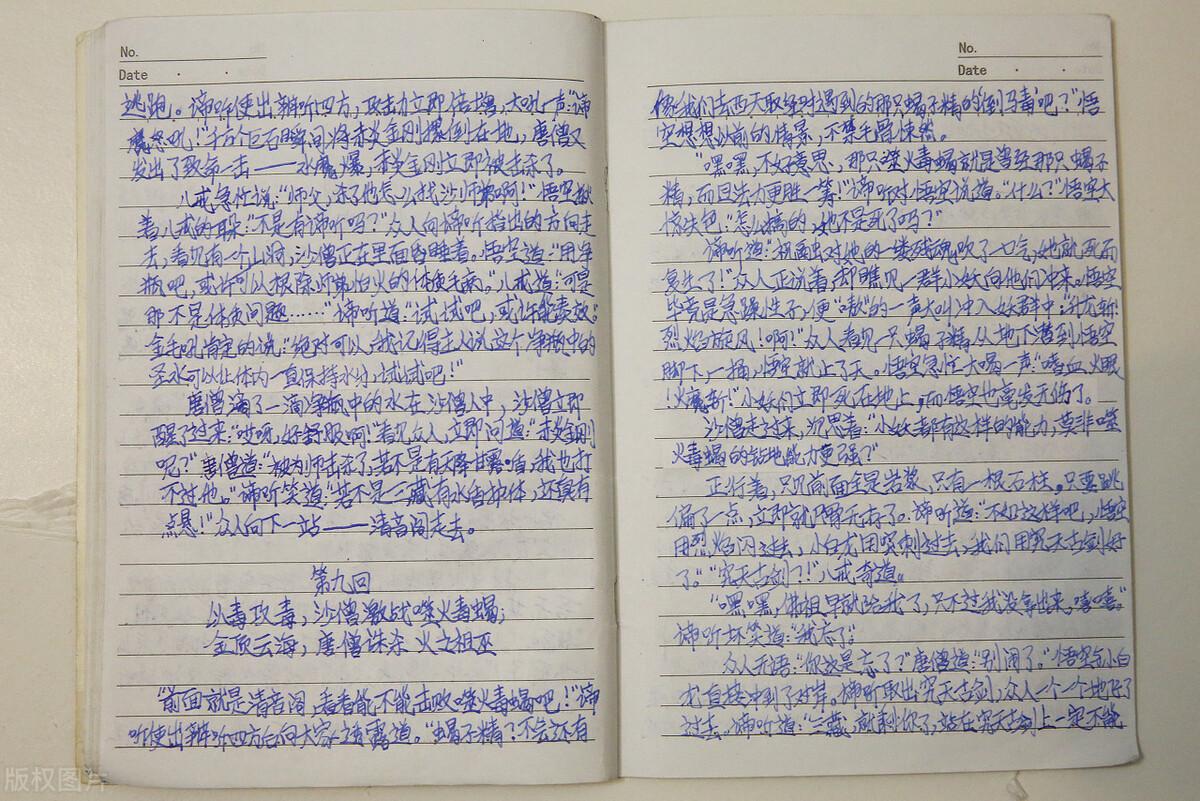 No.
Date
逃跑。谛听使出辨听四方,攻击力立即倍增,大吼一声:“谛
听怒吼!”千万个巨石瞬间将赤炎金刚撂倒在地,唐僧又
发出了致命一击——水魔爆,赤炎金刚立即被击杀了。
八戒急忙说:“师父,杀了他怎么找沙师弟啊!”悟空揪
着八戒的耳朵:“不是有谛听吗?”众人向谛听指出的方向走
去,看见有一个山洞,沙僧正在里面昏睡着。悟空道:“用净
瓶吧,或许可以根除师弟怕火的体质毛病。”八戒道:“可是
那不是体质问题……”谛听道:“试试吧,或许能奏效。”
金毛吼肯定的说:“绝对可以,我记得主人说这个净瓶中的
圣水可以让体内一直保持水分,试试吧!”
唐僧滴了一滴净瓶中的水在沙僧人中,沙僧立即
醒了过来:“哎呀,好舒服啊!”看见众人,立即问道:“赤炎金刚
呢?”唐僧道:“被为师击杀了,若不是有天降甘露盾,我也打
不过他。”谛听笑道:“若不是三藏有水盾护体,还真有
点悬!”众人向下一站——清音阁走去。
第九回
以毒攻毒,沙僧激战噬火毒蝎;
金顶云海,唐僧诛杀火之祖巫
“前面就是清音阁,看看能不能击败噬火毒蝎吧!”谛
听使出辨听四方后向大家透露道。“蝎子精?不会还有
No.
Date
像我们去西天取经时遇到的那只蝎子精的‘倒马毒’吧?”悟
空想想以前的情景,不禁毛骨悚然。
“嘿嘿,不好意思,那只噬火毒蝎就是曾经那只蝎子
精,而且法力更胜一筹!”谛听对悟空说道。“什么?”悟空大
惊失色:“怎么搞的,她不是死了吗?”
谛听道:“祝融对她的一缕残魂吹了一气,她就死而
复生了!”众人正说着,却瞧见一群小妖向他们冲来。悟空
毕竟是急躁性子,便“嗷”的一声大叫冲入妖群中:“升龙斩!
烈焰旋风!啊!”众人看见一只蝎子精从地下遁到悟空
脚下,一捅,悟空就上了天。悟空急忙大喝一声:“嗜血火眼
!火魔斩!”小妖们立即死在地上,而悟空也毫发无伤了。
沙僧走过来,沉思着:“小妖都有这样的能力,莫非噬
火毒蝎的钻地能力更强?”
正行着,只见前面全是岩浆,只有一根石柱。只要跳
偏了一点,立即就尸骨无存了。谛听道:“不如这样吧,悟空
用烈焰闪过去,小白龙用突刺过去,我们用究天古剑好
了。”“究天古剑?!”八戒奇道。
“嘿嘿,佛祖早就给我了,只不过我没拿出来,嘻嘻。”
谛听坏笑道:“我忘了。”
众人无语:“你这是忘了?”唐僧道:“别闹了。”悟空与小白
龙直接冲到了对岸。谛听取出究天古剑,众人一个一个地过了
过去。谛听道:“三藏,就剩你了,站在究天古剑上一定不能
版权图片